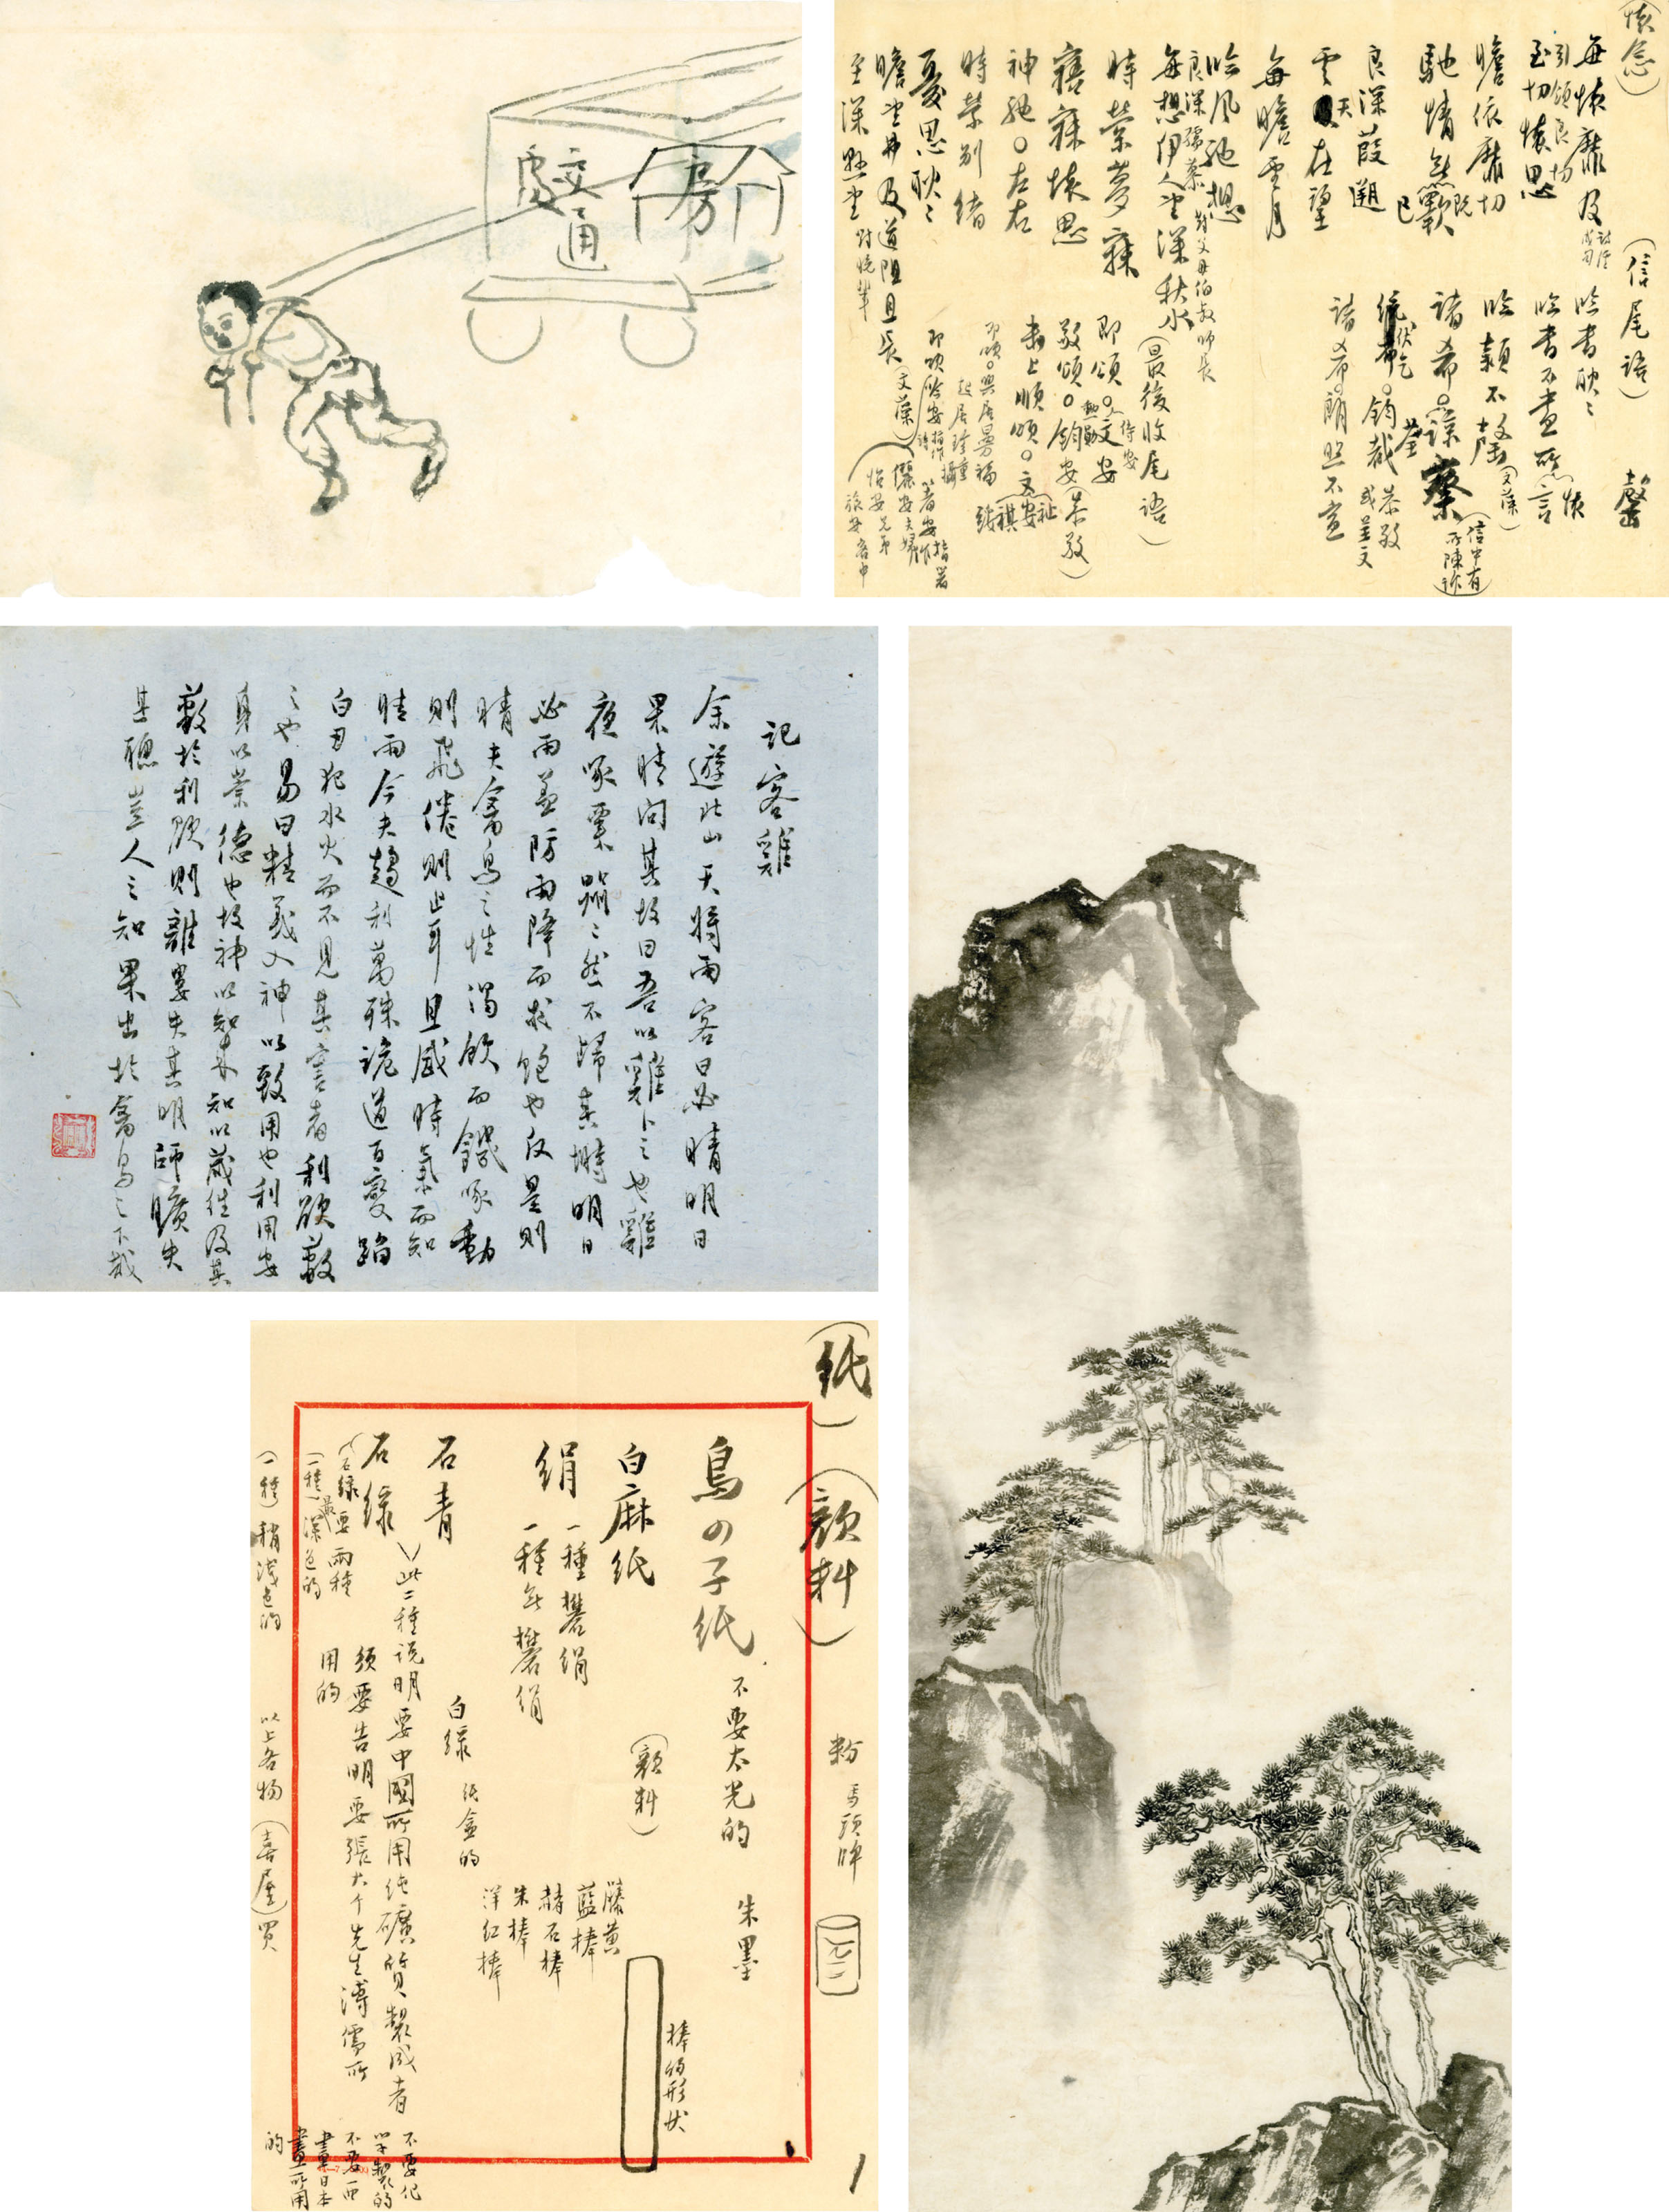 交通
房
(懷念)
每懷靡及
引領良切
至切懷思
瞻依靡切
馳情無已
良深葭溯
雲天在望
每瞻雲月
臨風馳想
每想伊人望深秋水
時縈夢寐
寤寐懷思
神馳○左右
時縈別緒
憂思耿々
瞻望弗及道阻且長
至深懸望
(信尾語)
臨書耿々
臨書不盡所言
臨穎不罄
諸希○諒察
諸希○朗照不宣
(信中有所陳述)
(最後收尾語)
即頌○文安
敬頌○鈞安
肅上順頌○文安
記客雞
余遊此山天將雨客曰必晴明日
果晴問其故曰吾以雞卜之也雞
夜啄粟蹴々然不歸其塒明日
必雨蓋防雨降而求飽也反是則
晴夫禽鳥之性渴飲而饑啄動
則飛倦則止耳且感時氣而知
晴雨今夫趨利萬殊詭道百變蹈
白刃犯水火而不見其害者利欲蔽
之也易曰精義入神以致用也利用安
身以崇德也故神以知來知以藏往及其
蔽於利欲則離婁失其明師曠失
其聰豈人之知果出於禽鳥之下哉
(紙)
(顏料)
粉 馬頭牌
鳥の子紙 不要太光的
朱墨
白麻紙
絹 一種礬絹
一種無礬絹
(顏料)
藤黃
藍棒
赭石棒
朱棒
洋紅棒
棒的形狀
石青
白綠 紙盒的
石綠
此二種說明要中國所用純礦質製成者
須要告明要張大千先生溥儒所
用的
不要化
學製的
不要西
畫日本
畫所用
的
(石綠要兩種
(一種)最深色的
(一種)稍淺色的
以上各物(喜屋)買